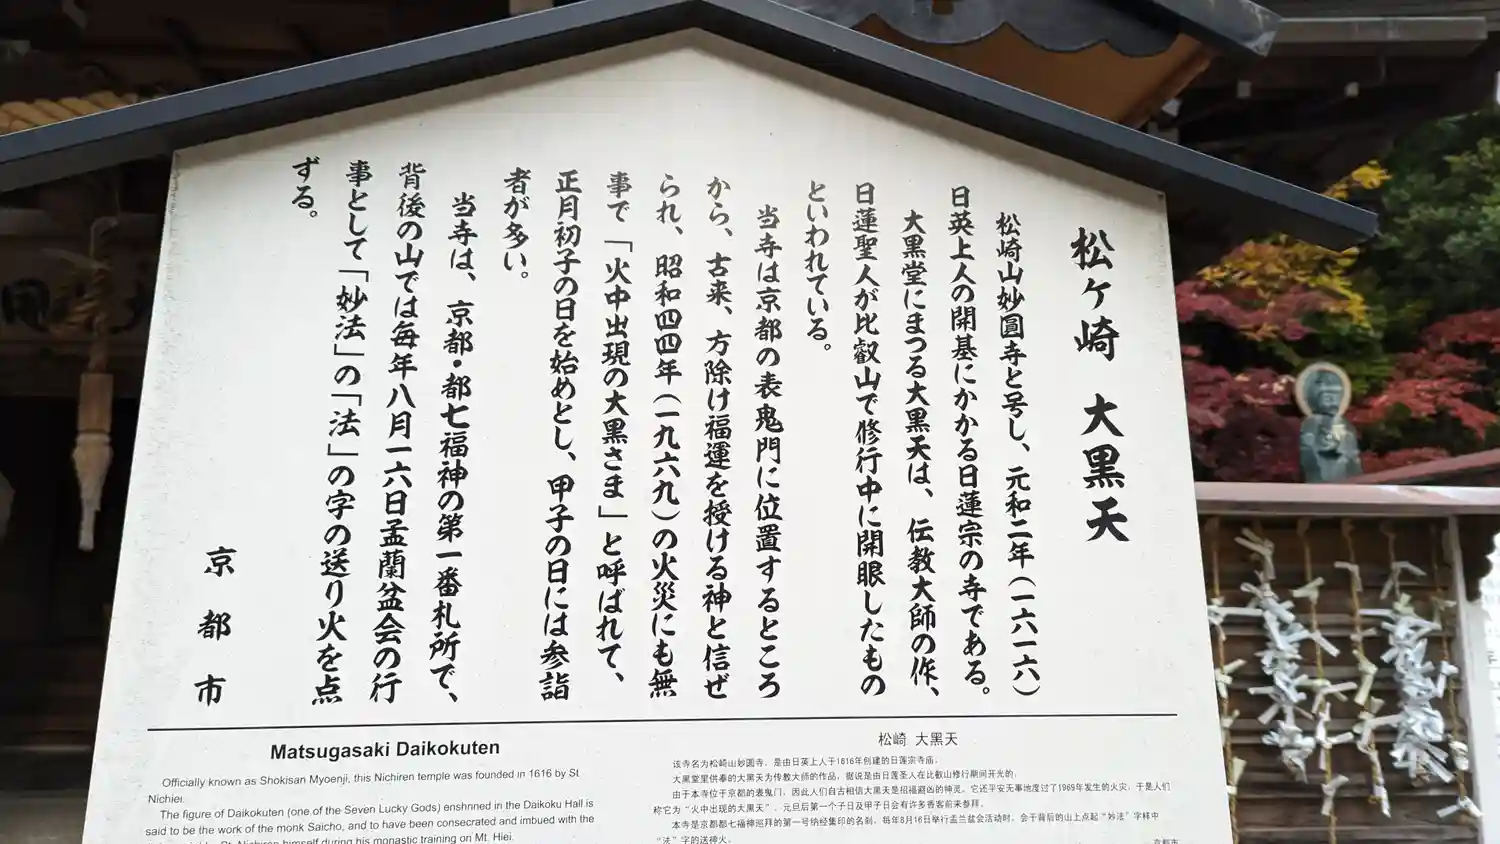 松ヶ崎 大黒天
松崎山妙圓寺と号し、元和二年(一六一六)
日英上人の開基にかかる日蓮宗の寺である。
大黒堂にまつる大黒天は、伝教大師の作、
日蓮聖人が比叡山で修行中に開眼したもの
といわれている。
当寺は京都の表鬼門に位置するところ
から、古来、方除け福運を授ける神と信ぜ
られ、昭和四四年(一九六九)の火災にも無
事で「火中出現の大黒さま」と呼ばれて、
正月初子の日を始めとし、甲子の日には参詣
者が多い。
当寺は、京都・都七福神の第一番札所で、
背後の山では毎年八月一六日盂蘭盆会の行
事として「妙法」の「法」の字の送り火を点
ずる。
京都市
Matsugasaki Daikokuten
Officially known as Shokisan Myoenji, this Nichiren temple was founded in 1616 by St
Nichiei.
The figure of Daikokuten (one of the Seven Lucky Gods) enshrined in the Daikoku Hall is
said to be the work of the monk Saicho, and to have been consecrated and imbued with the
St. Nichiren himself during his monastic training on Mt. Hiei.
松崎 大黑天
该寺名为松崎山妙圆寺，是由日英上人于1616年创建的日莲宗寺庙。
大黑堂里供奉的大黑天为传教大师的作品，据说是由日莲圣人在比叡山修行期间开光的。
由于本寺位于京都的表鬼门，因此人们自古相信大黑天是招福避凶的神灵。它还平安无事地度过了1969年发生的火灾，于是人们
称它为“火中出现的大黑天”，元旦后第一个子日及甲子日会有许多香客前来参拜。
本寺是京都都七福神巡拜的第一号纳经集印的名刹，每年8月16日举行盂兰盆会活动时，会于背后的山上点起“妙法”字样中
“法”字的送神火。
京都市